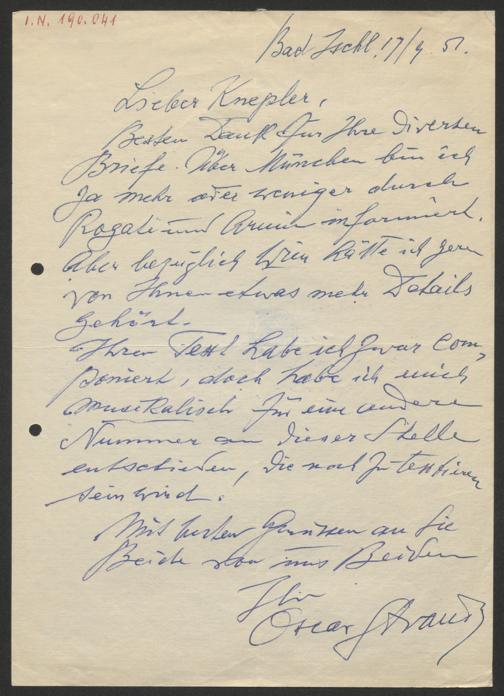 I.N. 190.041
Bad Ischl, 17/9. 51.
Lieber Knepler,
Besten Dank für Ihre diversen
Briefe. Über München bin ich
ja mehr oder weniger durch
Rogati und Armin informiert.
Aber bezüglich Wien hätte ich gern
von Ihnen etwas mehr Details
gehört.
Ihren Text habe ich zwar com-
poniert, doch habe ich mich
musikalisch für eine andere
Nummer an dieser Stelle
entschieden, die noch zu textieren
sein wird.
Mit besten Grüssen an Sie
Beide von uns Beiden
Ihr
Oscar Straus